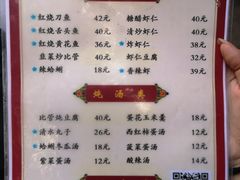 ★红烧刀鱼 42元
★红烧舌头鱼 40元
★红烧黄花鱼 36元
韭菜炒比管 40元
★辣蛤蝲 18元
糖醋虾仁 40元
清炒虾仁 40元
★炸虾仁 38元
虾仁豆腐 32元
★香辣虾 39元
炖汤类
比管炖豆腐 40元
★清水丸子 26元
★蛤蝲冬瓜汤 18元
紫菜蛋汤 12元
蛋花玉米羹 18元
西红柿蛋汤 12元
菠菜蛋汤 12元
酸辣汤 14元